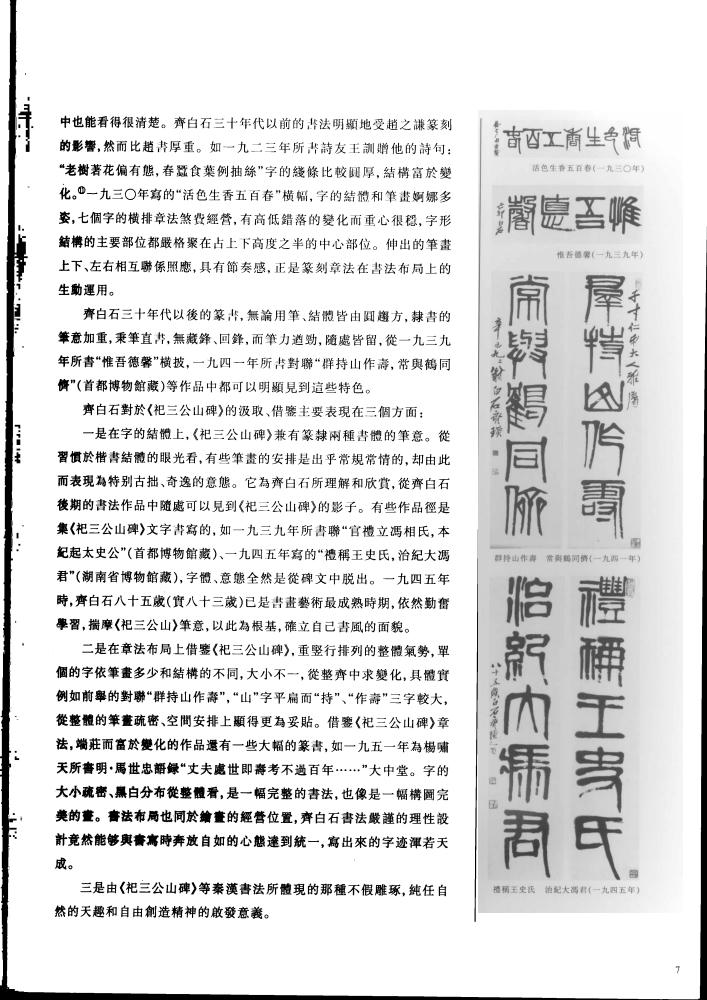 中也能看得很清楚。齊白石三十年代以前的書法明顯地受趙之謙篆刻
的影響，然而比趙書厚重。如一九二三年所書詩友王訓贈他的詩句：
“老樹著花偏有態，春蠶食葉例抽絲”字的綫條比較圓厚，結構富於變
化。①一九三〇年寫的“活色生香五百春”横幅，字的結體和筆畫婀娜多
姿，七個字的横排章法煞費經營，有高低錯落的變化而重心很穩，字形
結構的主要部位都嚴格聚在占上下高度之半的中心部位。伸出的筆畫
上下、左右相互聯係照應，具有節奏感，正是篆刻章法在書法布局上的
生動運用。
齊白石三十年代以後的篆書，無論用筆、結體皆由圓趨方，隸書的
筆意加重，秉筆直書，無藏鋒、回鋒，而筆力遒勁，隨處皆留，從一九三九
年所書“惟吾德馨”横披，一九四一年所書對聯“群持山作壽，常與鶴同
儕”（首都博物館藏）等作品中都可以明顯見到這些特色。
齊白石對於《祀三公山碑》的汲取、借鑒主要表現在三個方面：
一是在字的結體上，《祀三公山碑》兼有篆隸兩種書體的筆意。從
習慣於楷書結體的眼光看，有些筆畫的安排是出乎常規常情的，却由此
而表現為特别古拙、奇逸的意態。它為齊白石所理解和欣賞，從齊白石
後期的書法作品中隨處可以見到《祀三公山碑》的影子。有些作品徑是
集《祀三公山碑》文字書寫的，如一九三九年所書聯“官禮立馮相氏，本
紀起太史公”（首都博物館藏）、一九四五年寫的“禮稱王史氏，治紀大馮
君”（湖南省博物館藏），字體、意態全然是從碑文中脱出。一九四五年
時，齊白石八十五歲（實八十三歲）已是書畫藝術最成熟時期，依然勤奮
學習，揣摩《祀三公山》筆意，以此為根基，確立自己書風的面貌。
二是在章法布局上借鑒《祀三公山碑》，重竪行排列的整體氣勢，單
個的字依筆畫多少和結構的不同，大小不一，從整齊中求變化，具體實
例如前舉的對聯“群持山作壽”，“山”字平扁而“持”、“作壽”三字較大，
從整體的筆畫疏密、空間安排上顯得更為妥貼。借鑒《祀三公山碑》章
法，端莊而富於變化的作品還有一些大幅的篆書，如一九五一年為楊嘯
天所書明·馬世忠語録“丈夫處世即壽考不過百年……”大中堂。字的
大小疏密、黑白分布從整體看，是一幅完整的書法，也像是一幅構圖完
美的畫。書法布局也同於繪畫的經營位置，齊白石書法嚴謹的理性設
計竟然能够與書寫時奔放自如的心態達到統一，寫出來的字迹渾若天
成。
三是由《祀三公山碑》等秦漢書法所體現的那種不假雕琢，純任自
然的天趣和自由創造精神的啟發意義。
活色生香五百春
活色生香五百春（一九三〇年）
惟吾悳馨
惟吾德馨（一九三九年）
羣持山作壽
常與鶴同儕
群持山作壽　常與鶴同儕（一九四一年）
禮稱王史氏
治紀大馮君
禮稱王史氏　治紀大馮君（一九四五年）
7